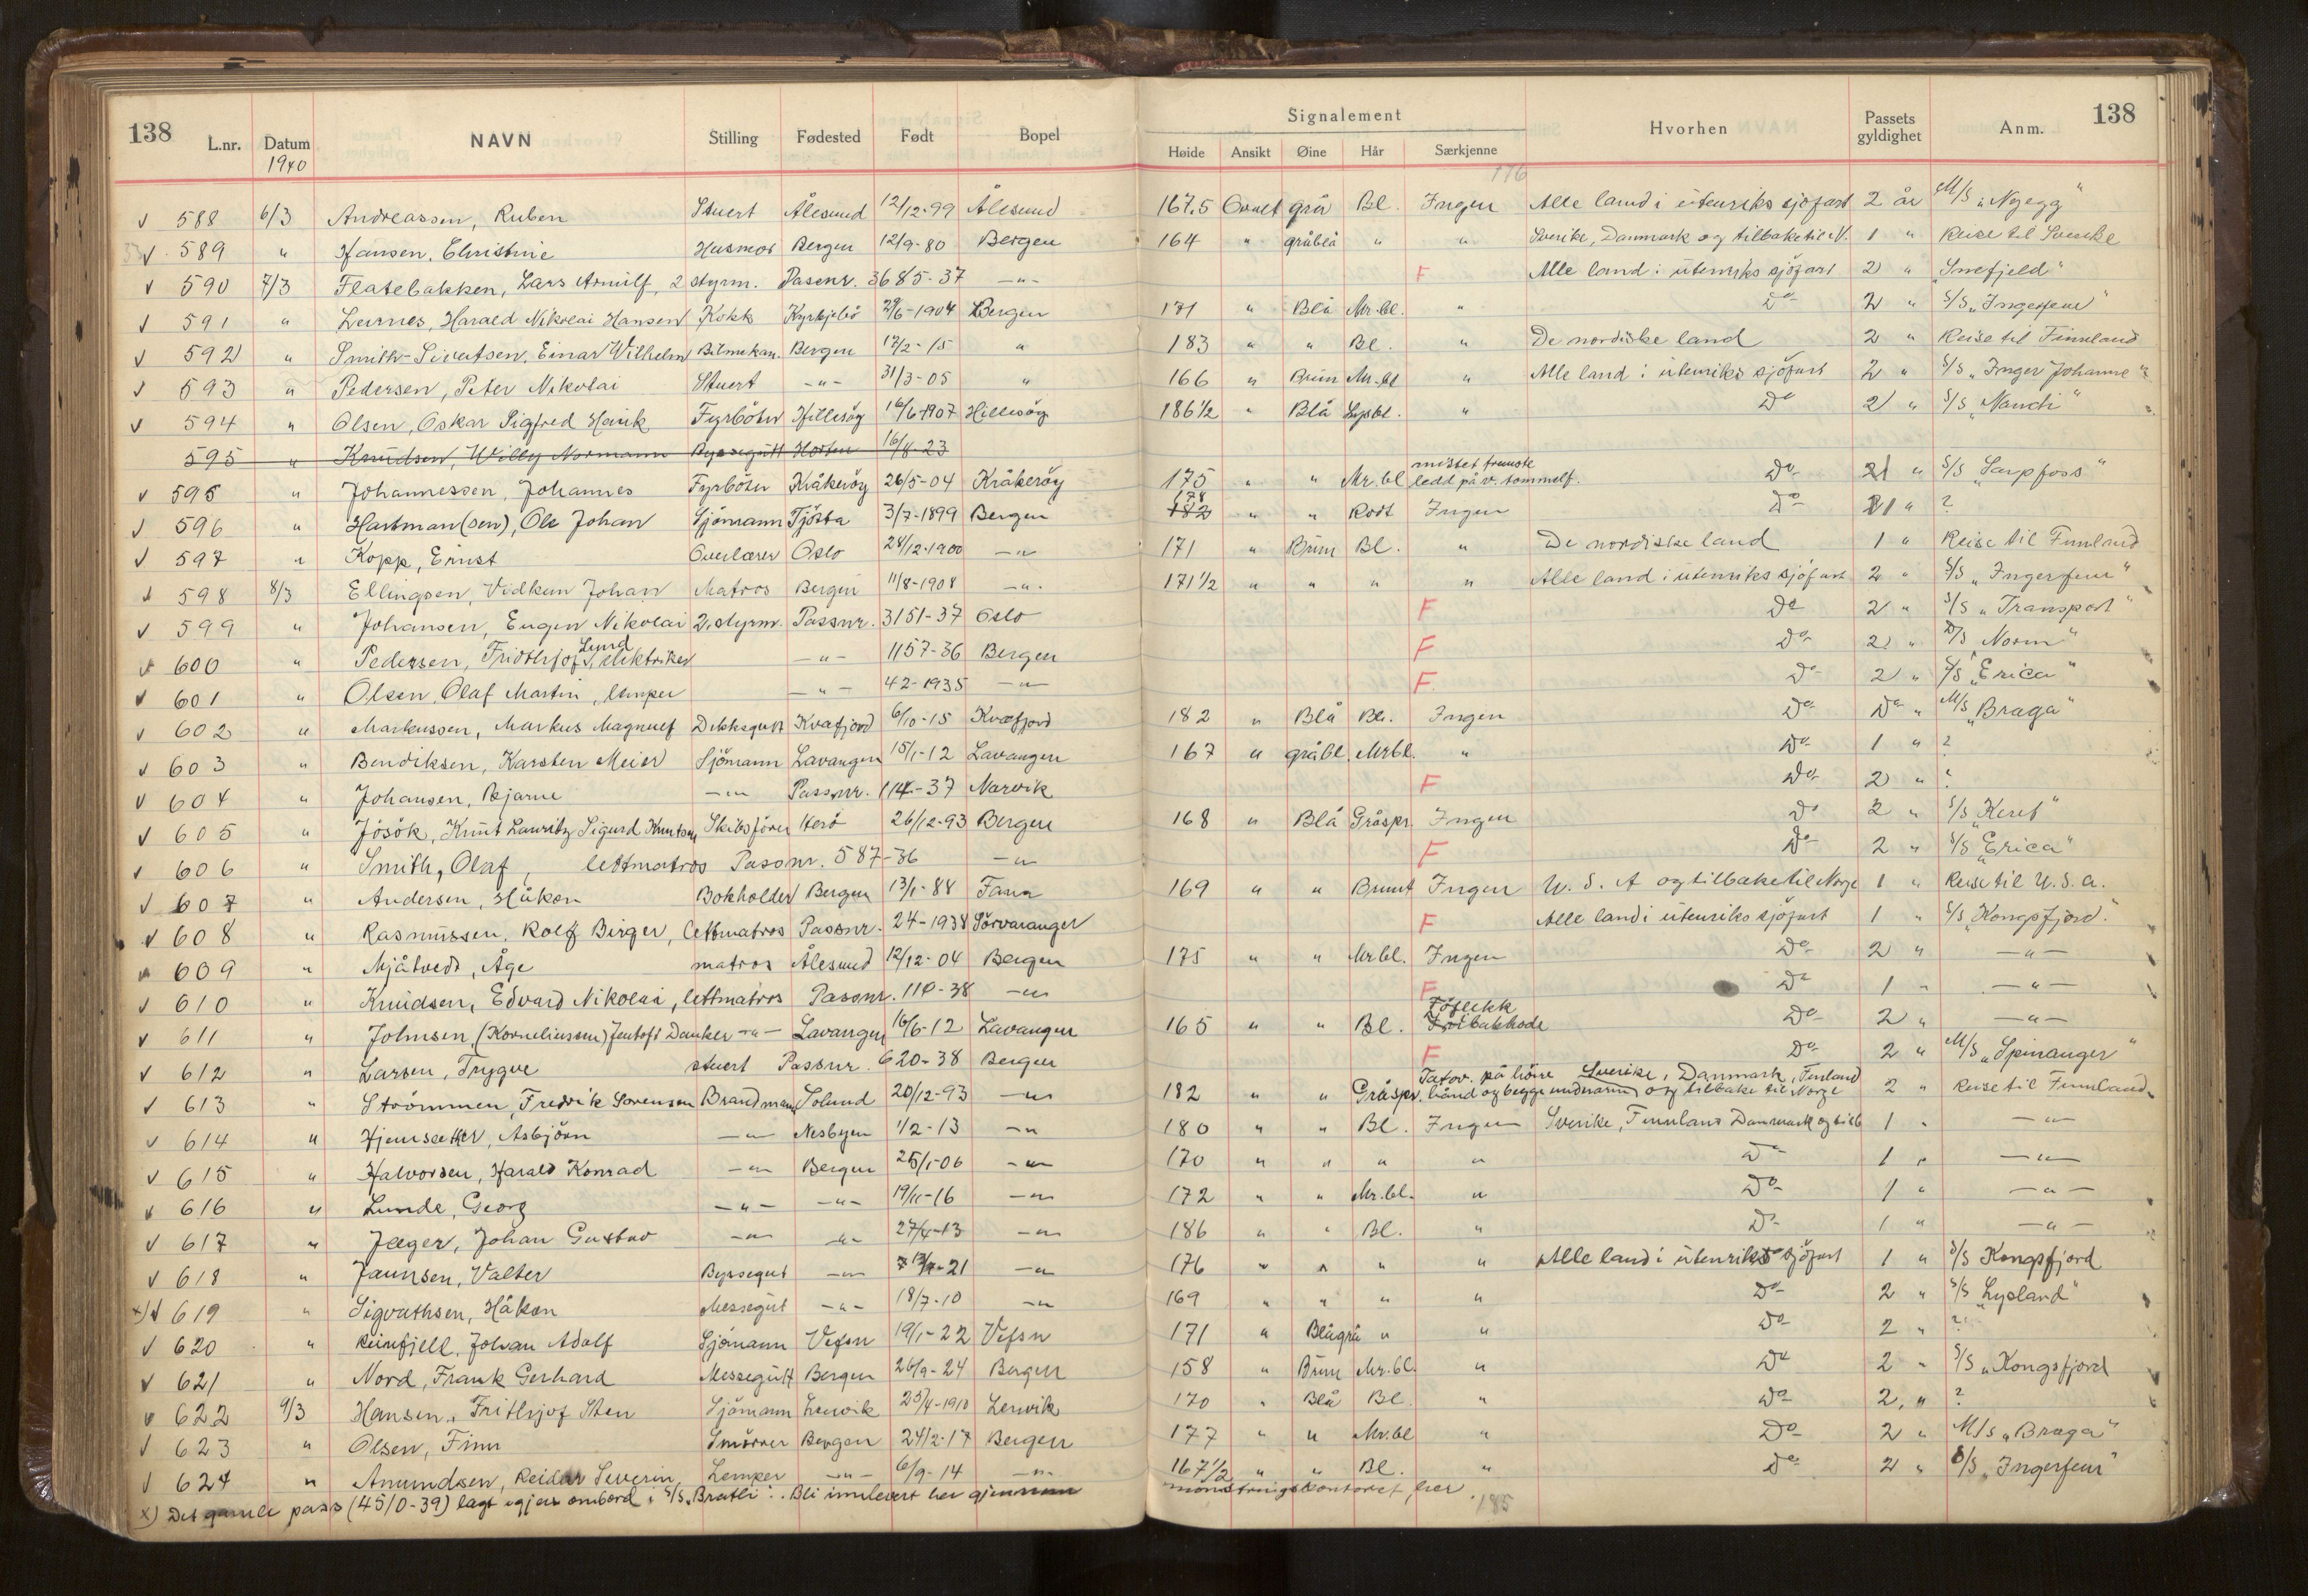 138 L.nr. Datum NAVN Stilling Fødested Født Bopel Signalement Hvorhen Passets gyldighet Anm. 138
1940 Høide Ansikt Øine Hår Særkjenne
176
v 588 6/3 Andreassen, Ruben Stuert Ålesund 12/12-99 Ålesund 167.5 Ovalt grå Bl. Ingen Alle land i utenriks sjöfart 2 år M/S „Nyegg"
v 589 " Hansen, Christine Husmor Bergen 12/9-80 Bergen 164 " gråblå " " Sverike, Danmark og tilbake til N. 1 " Reise til Sverike
v 590 7/3 Flatebakken, Lars Arnulf, 2 styrm. Passnr. 3685-37 -"- F Alle land i utenriks sjöfart 2 " „Snefjeld"
v 591 " Lernes, Harald Nikolai Hansen Kokk Kyrkjebö 29/6-1904 Bergen 171 " Blå Mr.bl. " Do 2 " S/S „Ingerfem"
v 592 " Smith-Sivertsen, Einar Wilhelm Bilmekan. Bergen 12/2-15 " 183 " " Bl. " De nordiske land 2 " Reise til Finnland
v 593 " Pedersen, Peter Nikolai Stuert -"- 31/3-05 " 166 " Brun Mr.bl " Alle land i utenriks sjöfart 2 " S/S „Inger Johanne"
v 594 " Olsen, Oskar Sigfred Hauik Fyrböter Hillesöy 16/6-1907 Hillesöy 186½ " Blå Lysbl. " Do 2 " S/S „Nandi"
595 " Knudsen, Willy Normann Byssegutt Horten 16/8-23
v 595 " Johannessen, Johannes Fyrböter Kråkeröy 26/5-04 Kråkeröy 175 " " Mr.bl mistet fremste ledd på v. tommelf. Do 1 " S/S „Sarpfoss"
v 596 " Hartman(sen), Ole Johan Sjömann Tjötta 3/7-1899 Bergen 182 178 " " Rödt Ingen Do 1 " ?
v 597 " Kopp, Ernst Overlærer Oslo 24/12-1900 -"- 171 " Brun Bl. " De nordiske land 1 " Reise til Finnland
v 598 8/3 Ellingsen, Vidkun Johan Matros Bergen 11/8-1908 -"- 171½ " " " " Alle land i utenriks sjöfart 2 " S/S „Ingerfem"
v 599 " Johansen, Eugen Nikolai 2. styrm. Passnr. 3151-37 Oslo F Do 2 " S/S „Transport"
v 600 " Pedersen, Fridthjof Lund, elektriker -"- 1157-36 Bergen F Do 2 " D/S „Norm"
v 601 " Olsen, Olaf Martin, lemper -"- 42-1935 -"- F Do 2 " S/S „Erica"
v 602 " Markussen, Markus Magnulf Dekksgutt Kvæfjord 6/10-15 Kvæfjord 182 " Blå Bl. Ingen Do Do " M/S „Braga"
v 603 " Bendiksen, Karsten Meier Sjömann Lavangen 15/1-12 Lavangen 167 " gråbl. Mrbl. " Do 1 " ?
v 604 " Johansen, Bjarne -"- Passnr. 114-37 Narvik F Do 2 " ?
v 605 " Jösök, Knut Lauritz Sigurd Knutsen Skibsförer Herö 26/12-93 Bergen 168 " Blå Gråspr. Ingen Do 2 " S/S „Keret"
v 606 " Smith, Olaf, lettmatros Passnr. 587-36 -"- F Do 2 " S/S „Erica"
v 607 " Andersen, Håkon Bokholder Bergen 13/1-88 Fana 169 " " Brunt Ingen U.S.A og tilbake til Norge 1 " Reise til U.S.A.
v 608 " Rasmussen, Rolf Birger, lettmatros Passnr. 24-1938 Sörvaranger F Alle land i utenriks sjöfart 1 " S/S „Kongsfjord"
v 609 " Mjåtvedt, Åge matros Ålesund 12/12-04 Bergen 175 " " Mrbl. Ingen Do 2 " -"-
v 610 " Knudsen, Edvard Nikolai, lettmatros Passnr. 110-38 -"- F Do 1 " -"-
v 611 " Johnsen, (Korneliussen) Jentoft Danker -"- Lavangen 16/6-12 Lavangen 165 " " Bl. Föflekk bakhode Do 2 " -"-
v 612 " Larsen, Trygve stuert Passnr. 620-38 Bergen F Do 2 " M/S „Spinanger"
v 613 " Strömmen, Fredrik Sorensen Brandmann Solund 20/12-93 -"- 182 " " Gråspr. Tatov. på höire hånd og begge underarmer Sverike, Danmark, Finland og tilbake til Norge 2 " Reise til Finnland
v 614 " Hjemsæther, Asbjörn -"- Nesbyen 1/2-13 -"- 180 " " Bl. Ingen Sverike, Finnland Danmark og tilb 1 " -"-
v 615 " Halvorsen, Harald Konrad -"- Bergen 25/1-06 -"- 170 " " " " Do 1 " -"-
v 616 " Lunde, Georg -"- -"- 19/11-16 -"- 172 " " Mr.bl. " Do 1 " -"-
v 617 " Jæger, Johan Gustav -"- -"- 27/4-13 -"- 186 " " Bl. " Do 1 " -"-
v 618 " Jaunsen, Valter Byssegut -"- -21 -"- 176 " " " " Alle land i utenriks sjöfart 1 " S/S Kongsfjord
x) v 619 " Sigvathsen, Håkon Messegut -"- 18/7-10 -"- 169 " " " " Do 2 " S/S „Lysland"
v 620 " Reinfjell, Johan Adolf Sjömann Vefsn 19/1-22 Vefsn 171 " Blågrå " " Do 2 " ?
v 621 " Nord, Frank Gerhard Messegutt Bergen 26/9-24 Bergen 158 " Brun Mr.bl. " Do 2 " S/S „Kongsfjord
v 622 9/3 Hansen, Frithjof Sten Sjömann Lervik 25/4-1910 Lervik 170 " Blå Bl " Do 2 " ?
v 623 " Olsen, Finn Smörer Bergen 24/2-17 Bergen 177 " " Mr.bl " Do 2 " M/S „Braga"
v 624 " Amundsen, Reidar Severin Lemper -"- 6/9-14 -"- 167½ " " Bl. " Do 2 " S/S „Ingerfem"
x) Det gamle pass (4510-39) lagt igjen ombord i S/S „Bratli". Bli innlevert her gjennom mönstringskontoret her.
185